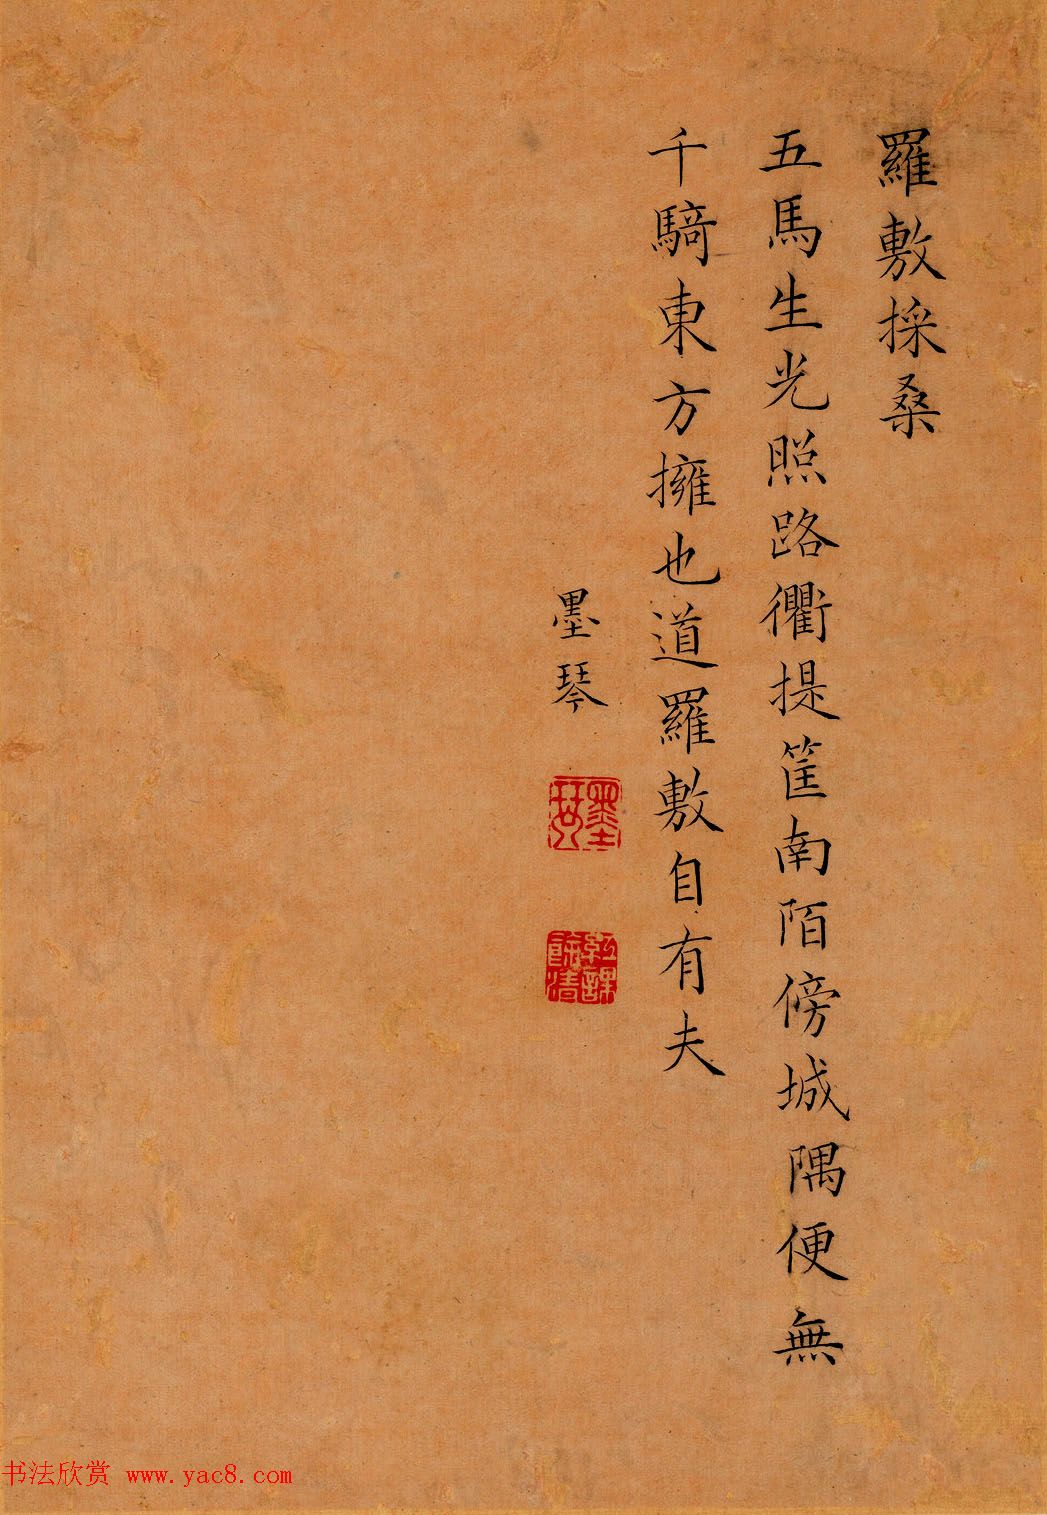 羅敷採桑
五馬生光照路衢提筐南陌傍城隅便無
千騎東方擁也道羅敷自有夫
墨琴
墨琴
紅課餘清
书法欣赏 www.yac8.com